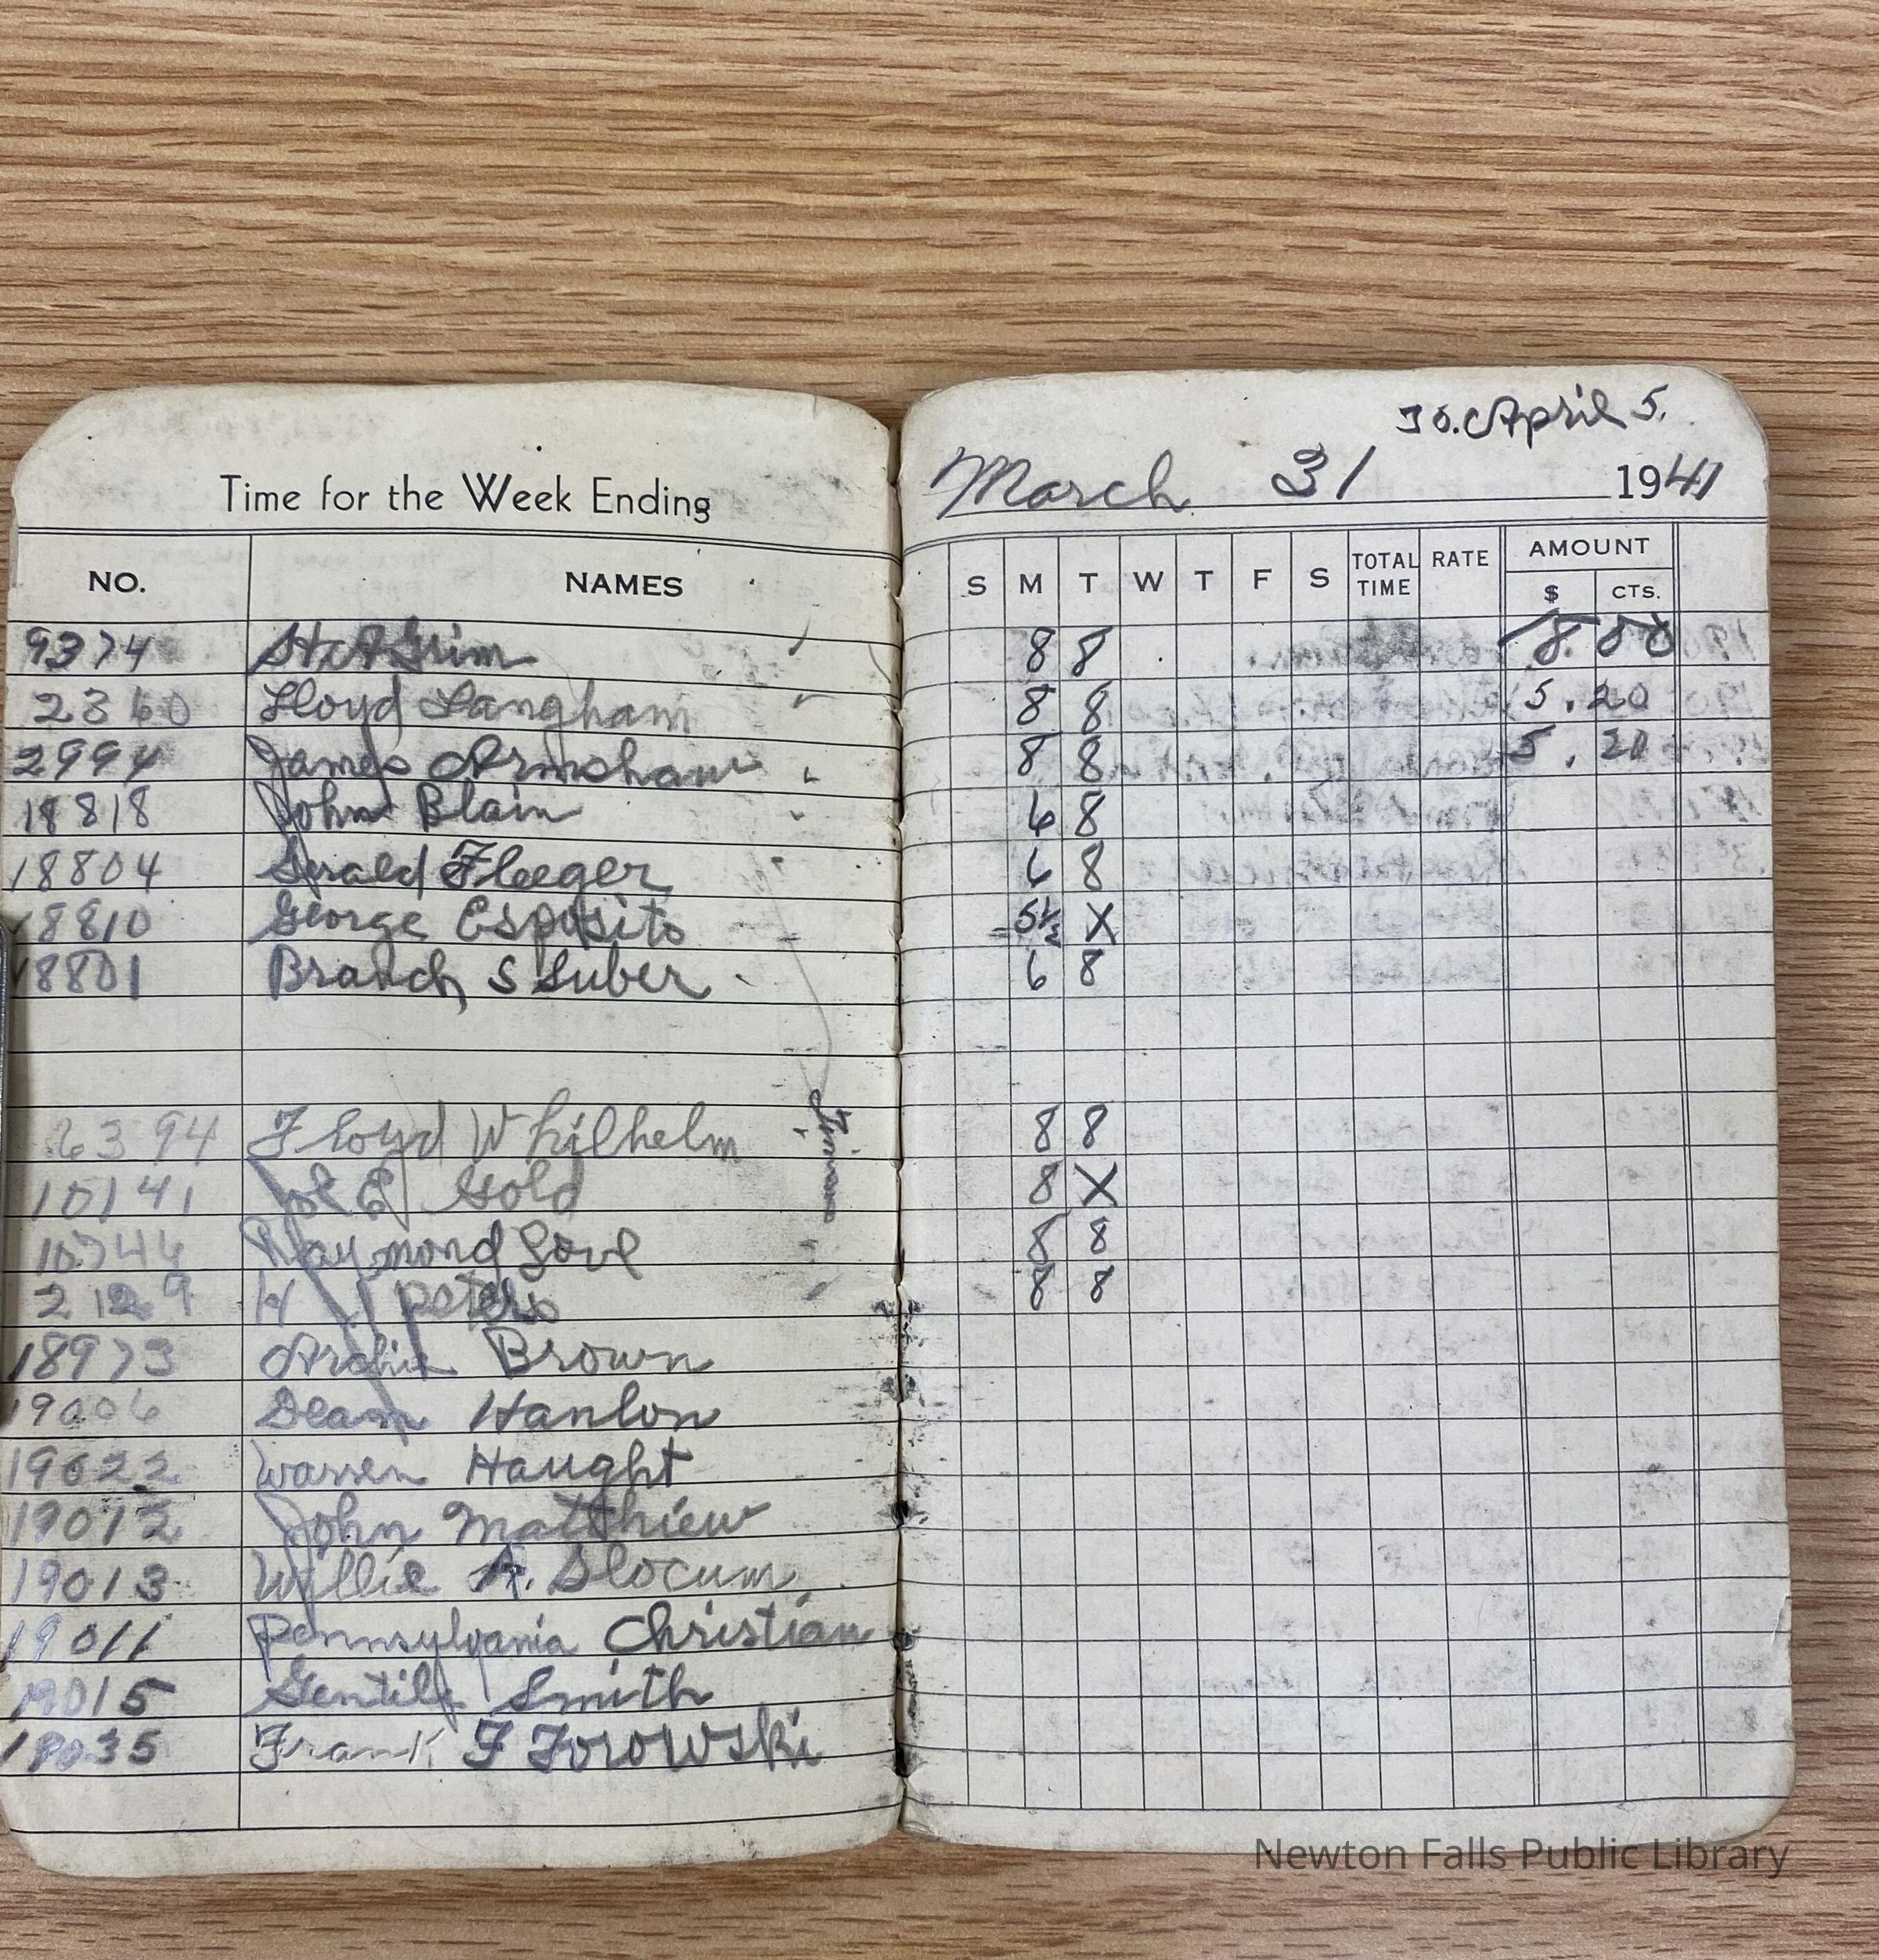 To. April 5.
Time for the Week Ending March 31 1941
NO. NAMES S M T W T F S TOTAL TIME RATE AMOUNT $ CTS.
9374 H A Grim 8 8 8. 80
2360 Lloyd Langham 8 8 5. 20
2994 James 8 8 5. 20
18818 John Blain 6 8
18804 Gerald Fleeger 6 8
18810 George Esposito 5½ X
18801 Branch S Suber 6 8
6394 Floyd Whilhelm 8 8
10141 Joe E Gold 8 X
Raymond Love 8 8
2129 H J Peters 8 8
18973 Archie Brown
19006 Dean Hanlon
19022 Warren Haught
19012 John Matthiew
19013 Wyllie A. Slocum
19011 Pennsylvania Christian
19015 Gentile Smith
19035 Frank F Torowski
Newton Falls Public Library